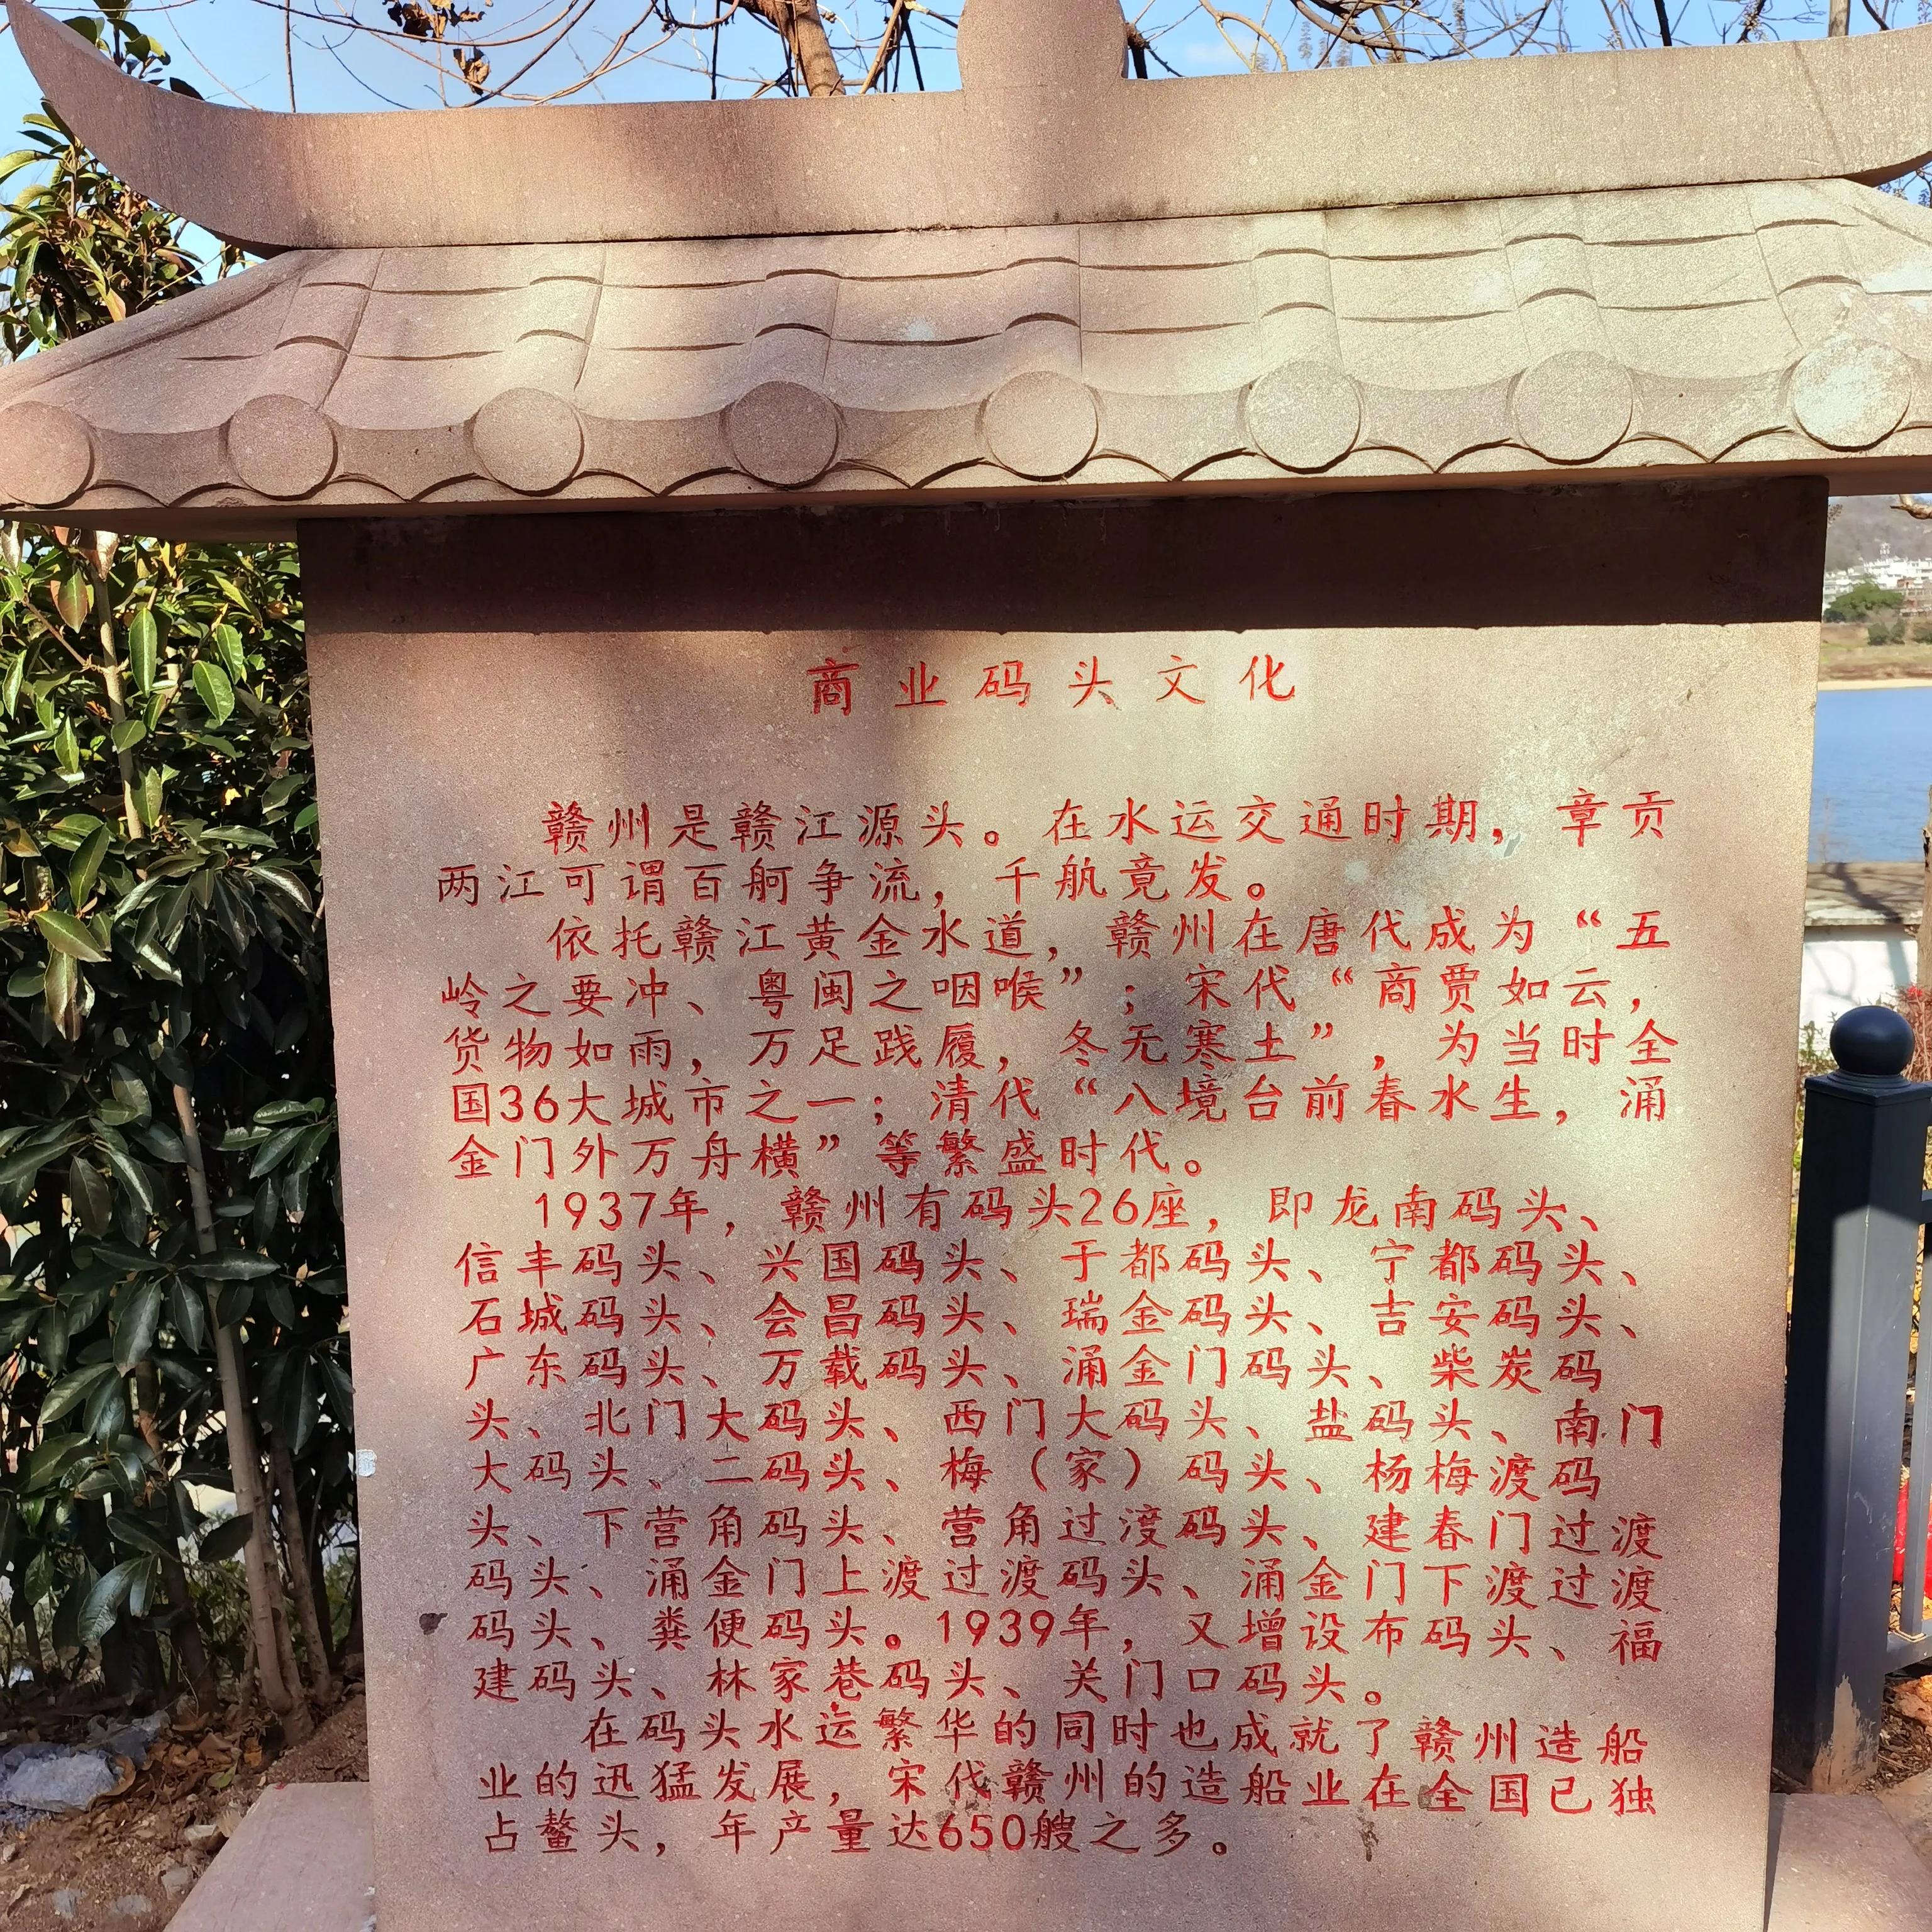 商业码头文化
赣州是赣江源头。在水运交通时期，章贡
两江可谓百舸争流，千航竟发。
依托赣江黄金水道，赣州在唐代成为“五
岭之要冲、粤闽之咽喉”；宋代“商贾如云，
货物如雨，万足践履，冬无寒土”，为当时全
国36大城市之一；清代“八境台前春水生，涌
金门外万舟横”等繁盛时代。
1937年，赣州有码头26座，即龙南码头、
信丰码头、兴国码头、于都码头、宁都码头、
石城码头、会昌码头、瑞金码头、吉安码头、
广东码头、万载码头、涌金门码头、柴炭码
头、北门大码头、西门大码头、盐码头、南门
大码头、二码头、梅（家）码头、杨梅渡码
头、下营角码头、营角过渡码头、建春门过渡
码头、涌金门上渡过渡码头、涌金门下渡过渡
码头、粪便码头。1939年，又增设布码头、福
建码头、林家巷码头、关门口码头。
在码头水运繁华的同时也成就了赣州造船
业的迅猛发展，宋代赣州的造船业在全国已独
占鳌头，年产量达650艘之多。